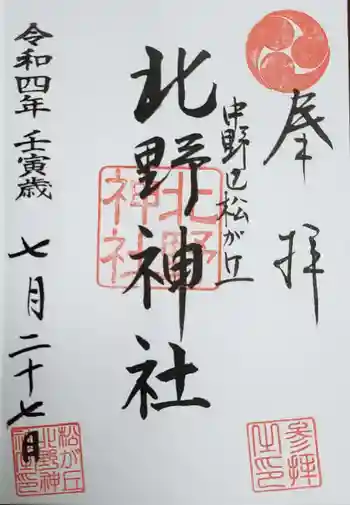 奉拝
中野区松が丘
北野神社
北野
神社
令和四年 壬寅歳 七月二十七日
参拝
之印
松が丘
北野神
社之印